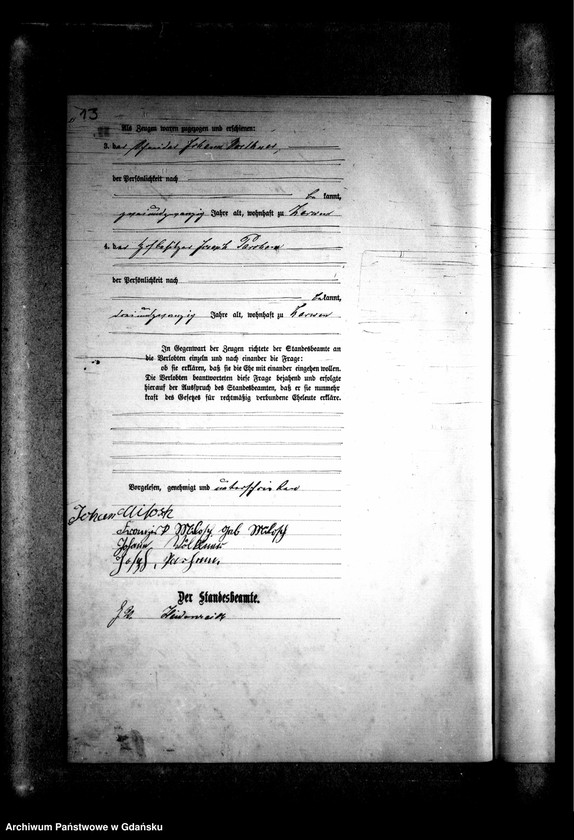 13
Als Zeugen waren zugezogen und erschienen:
3. der Schneider Johann
der Persönlichkeit nach
be kannt,
zweiundzwanzig Jahre alt, wohnhaft zu Zarnen
4. der Hofbesitzer Joseph
der Persönlichkeit nach
bekannt,
dreiundzwanzig Jahre alt, wohnhaft zu Zarnen
In Gegenwart der Zeugen richtete der Standesbeamte an
die Verlobten einzeln und nach einander die Frage:
ob sie erklären, daß sie die Ehe mit einander eingehen wollen.
Die Verlobten beantworteten diese Frage bejahend und erfolgte
hierauf der Ausspruch des Standesbeamten, daß er sie nunmehr
kraft des Gesetzes für rechtmäßig verbundene Eheleute erkläre.
Vorgelesen, genehmigt und unterschrieben
Johan
geb
Johann
Josef
Der Standesbeamte.
Heidenreich
Archiwum Państwowe w Gdańsku